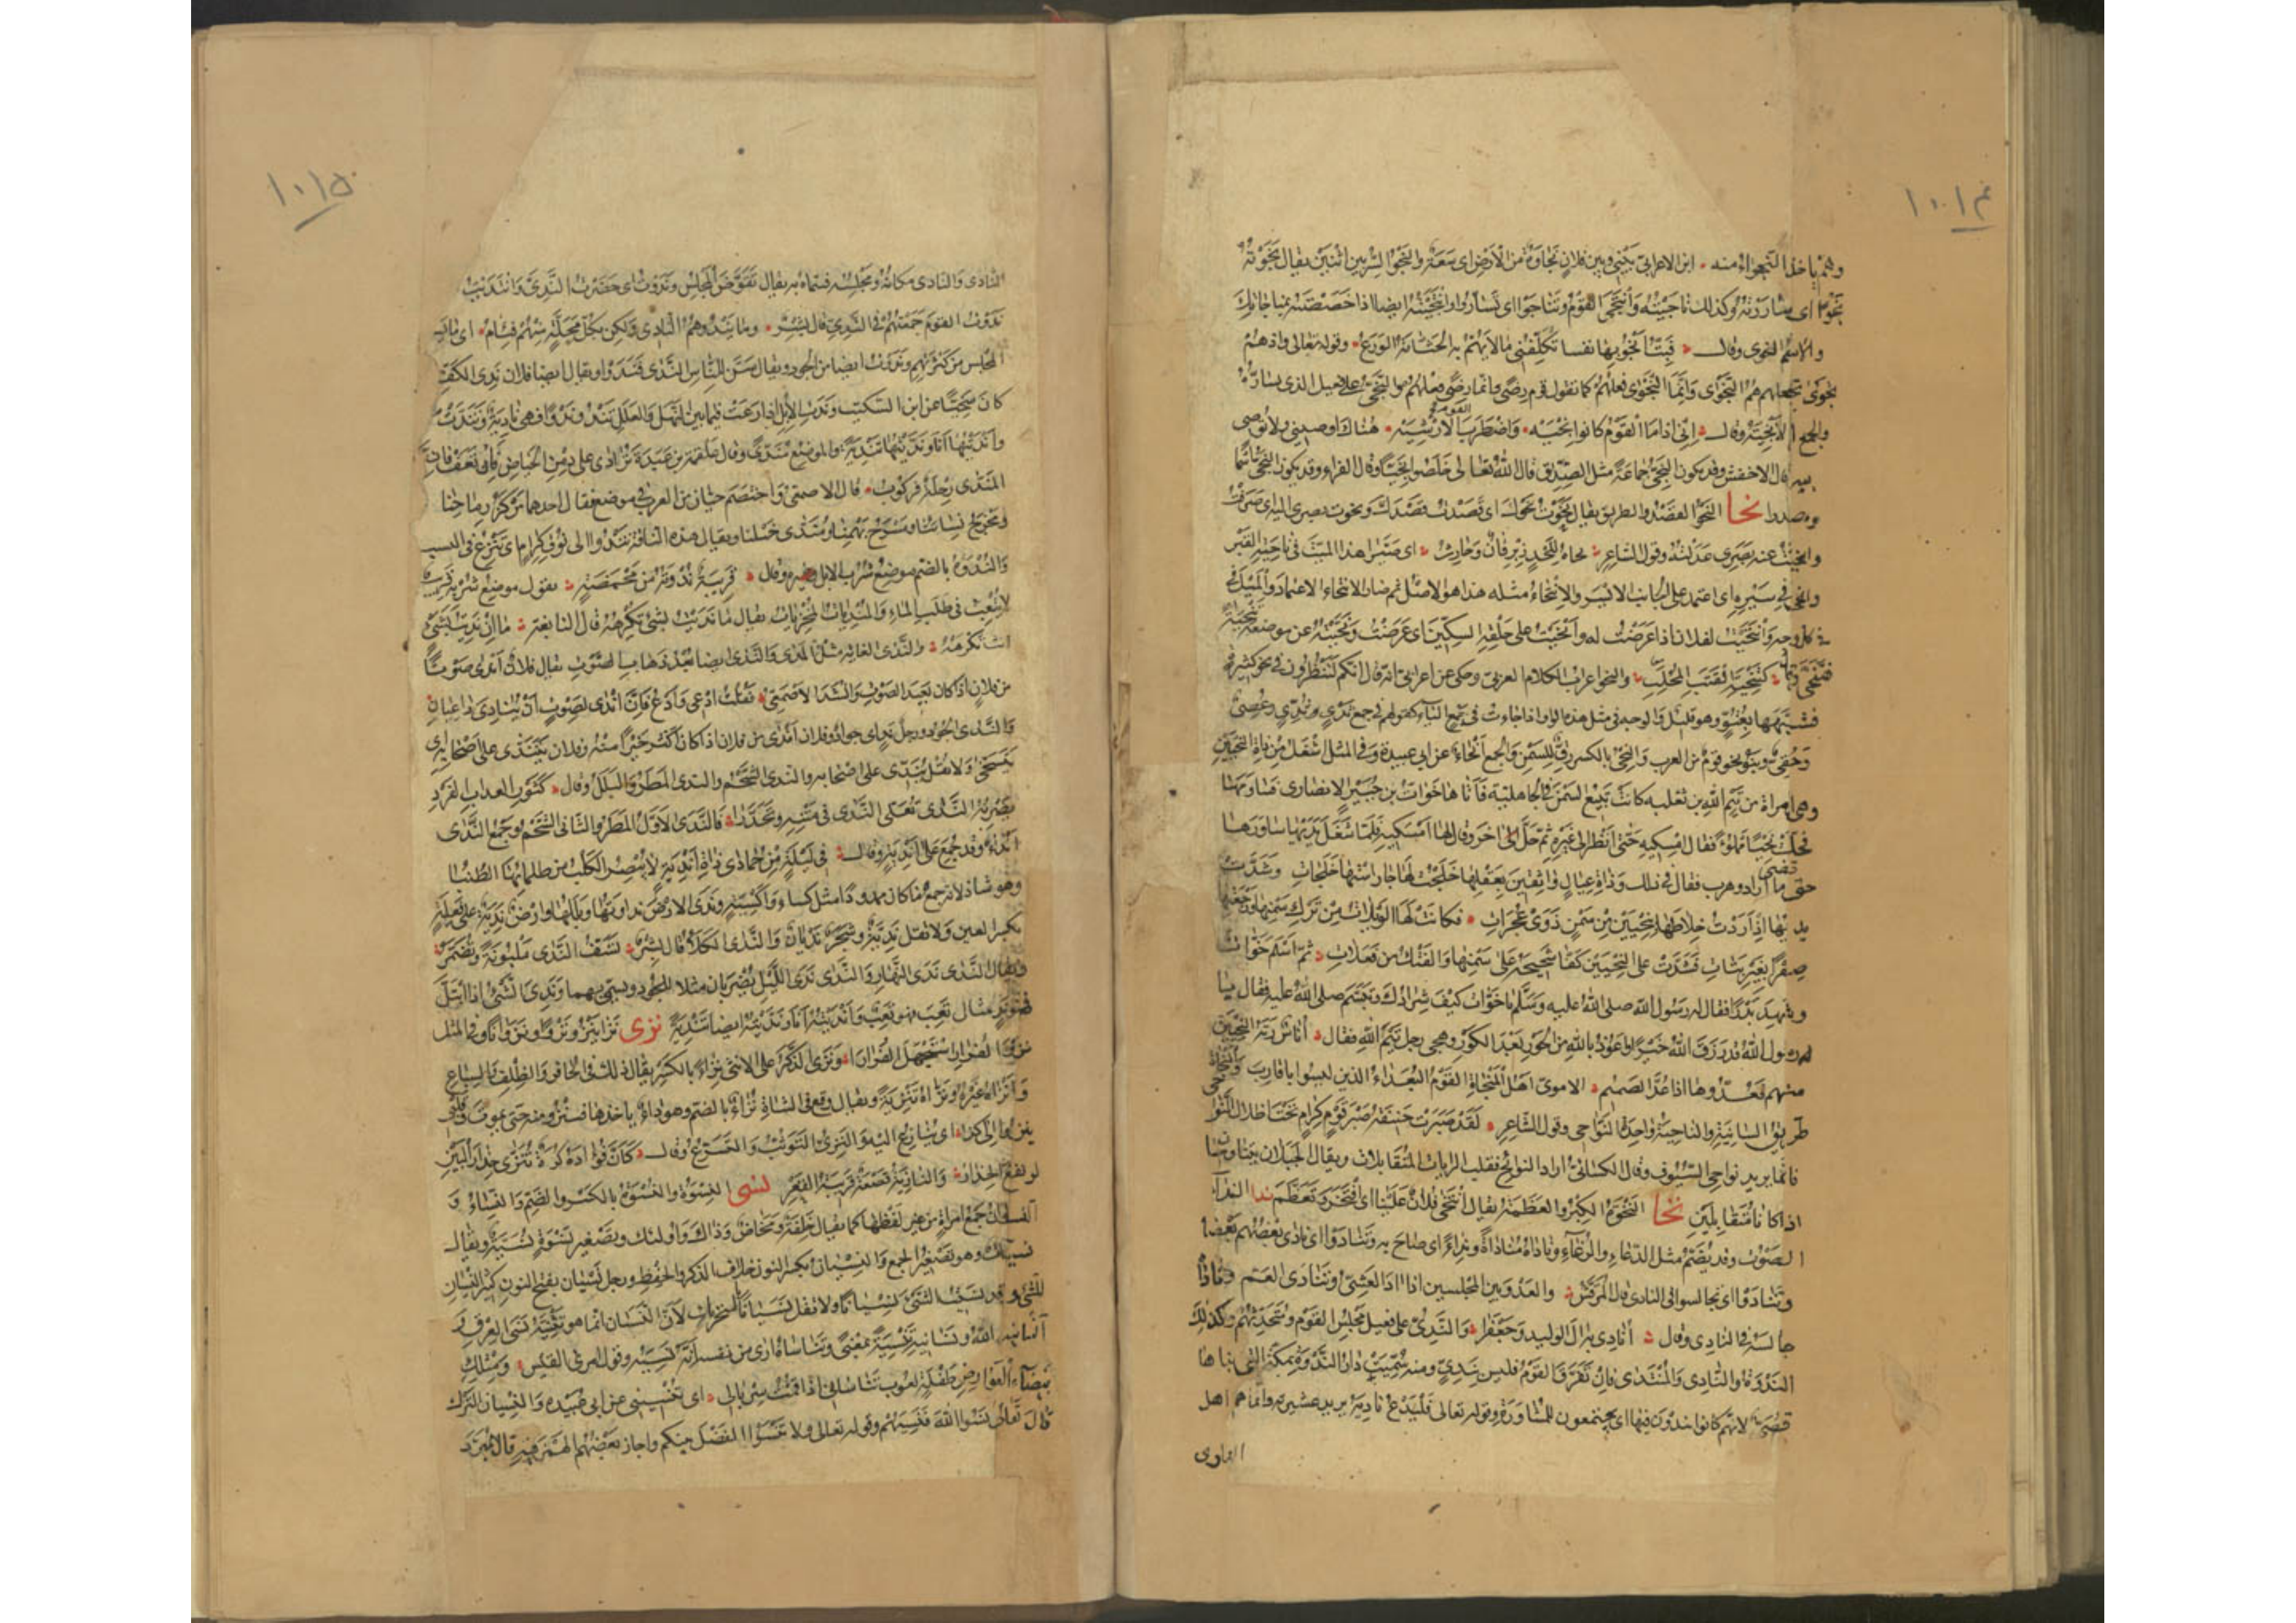 ١٠١٤
وهم ياخذ النجواء منه ابن الاعرابي بيني وبين فلان نجاوة من الارض اى سعة والنجو السر بين اثنين يقال نجوته
نجوا اى ساررته وكذلك ناجيته وانتجى القوم وتناجوا اى تساروا وانتجيته ايضا اذا خصصته بمناجاتك
والاسم النجوى وقال فبت انجو بها نفسا تكلفنى مالا يهم به الجثامة الورع وقوله تعالى واذ هم
نجوى فجعلهم هم النجوى وانما النجوى فعلهم كما تقول قوم رضى وانما رضى فعلهم والنجى على فعيل الذى تساره
والجمع الانجية وقال انى اذا ما القوم كانوا انجيه واضطرب القوم اضطراب الارشيه هناك اوصينى ولا توصى
بيه قال الاخفش وقد يكون النجى جماعة مثل الصديق قال الله تعالى خلصوا نجيا وقال الفراء وقد يكون النجى اسما
ومصدرا نحا النحو القصد والطريق يقال نحوت نحوك اى قصدت قصدك ونحوت بصرى اليه اى صرفت
وانحيت عنه بصرى عدلته وقول الشاعر نحاه للحد زبرقان وحارث اى صيرا هذا الميت فى ناحية القبر
وانحى فى سيره اى اعتمد على الجانب الايسر والانتحاء مثله هذا هو الاصل ثم صار الانتحاء الاعتماد والميل فى
كل وجه وانتحيت لفلان اذا عرضت له وانحيت على حلقه السكين اى عرضت ونحيته عن موضعه تنحية
فتنحى وقال كتنحية القتب المجلب والنحو اعراب الكلام العربى وحكى عن اعرابى انه قال انكم لتنظرون فى نحو كثيرة
فشبهها بعتو وهو قليل والوجه فى مثل هذه الواو اذا جاءت فى جمع الياء كقولهم فى جمع ثدى ثدى وعصى
وحقى وبنو نحو قوم من العرب والنحى بالكسر زق للسمن والجمع انحاء عن ابى عبيدة وفى المثل اشغل من ذات النحيين
وهى امراة من تيم الله بن ثعلبه كانت تبيع السمن فى الجاهلية فاتاها خوات بن جبير الانصارى فساومها
فحلت نحيا مملوءا فقال امسكيه حتى انظر الى غيره ثم حل اخر وقال لها امسكيه فلما شغل يديها ساورها
حتى قضى ما اراد وهرب فقال فى ذلك وذات عيال واثقين بعقلها خلجت لها جار استها خلجات وشدت
يديها اذ اردت خلاطها بنحيين من سمن ذوى عجرات فكانت لها الويلات من ترك سمنها ورجعتها
صفرا بغير بتات فشدت على النحيين كفا شحيحة على سمنها والفتك من فعلاتى ثم اسلم خوات
وشهد بدرا فقال له رسول الله صلى الله عليه وسلم يا خوات كيف شرادك وتبسم صلى الله عليه فقال يا
رسول الله قد رزق الله خيرا واعوذ بالله من الحور بعد الكور وهجى رجل تيم الله فقال اناس ربة النحيين
منهم فعدوها اذا عد الصميم الاموى اهل المنحاة القوم البعداء الذين ليسوا باقارب والمنحاة
طريق السانية والناحية واحدة النواحى وقول الشاعر لقد صبرت حنيفة صبر قوم كرام تحت اظلال النواحى
فانما يريد نواحى السيوف وقال الكسائى اراد النوائح فقلب الرايات المتقابلات ويقال الجبلان يتناوحان
اذا كانا متقابلين نخا النخوة الكبر والعظمة يقال انتخى فلان علينا اى افتخر وتعظم ندا النداء
الصوت وقد يضم مثل الدعاء والرغاء وناداه مناداة ونداء اى صاح به وتنادوا اى نادى بعضهم بعضا
وتنادوا اى تجالسوا فى النادى قال المرقش والعدو بين المجلسين اذا اد العشى وتنادى العم وناداه
جالسه فى النادى وقال انادى به ال الوليد وجعفرا والندى على فعيل مجلس القوم ومتحدثهم وكذلك
الندوة والنادى والمنتدى فان تفرق القوم فليس بندى ومنه سميت دار الندوة بمكة التى بناها
قصى لانهم كانوا يندون فيها اى يجتمعون للمشاورة وقوله تعالى فليدع ناديه يريد عشيرته وانما هم اهل
النادى
١٠١٥
النادى والنادى مكانه ومجلسه فسماه به يقال تقوض المجلس وندوت اى حضرت الندى وانتديت
ندوت القوم جمعتهم فى الندى قال بشر وما يندوهم النادى ولكن بكل محلة منهم فئام اى ما يسع
المجلس من كثرتهم وندوت ايضا من الجود ويقال سن للناس الندى فندوا ويقال ايضا فلان ندى الكف
كان سخيا عن ابن السكيت وندت الابل اذا رعت فيما بين النهل والعلل تندو ندوا فهى نادية وتندت
وانديتها انا ونديتها تندية والموضع مندى وقال علقمة بن عبدة ترادى على دمن الحياض فان تعف فان
المندى رحلة فركوب قال الاصمعى واختصم حيان من العرب فى موضع فقال احدهما مركز رماحنا
ومخرج نسائنا ومسرح بهمنا ومندى خيلنا ويقال هذه الناقة تندو الى نوق كرام اى تنزع فى النسب
والندوة بالضم موضع شرب الابل وقال قريبة ندوته من محمضه يقول موضع شربه قريب
لا يتعب فى طلب الماء والمنديات المخزيات يقال ما نديت بشئ تكرهه قال النابغة ما ان نديت بشئ
انت تكرهه والندى الغاية مثل المدى والندى ايضا بعد ذهاب الصوت يقال فلان اندى صوتا
من فلان اذا كان بعيد الصوت وانشد الاصمعى فقلت ادعى وادع فان اندى لصوت ان ينادى داعيان
والندى الجود ورجل ند اى جواد وفلان اندى من فلان اذا كان اكثر خيرا منه وفلان يتندى على اصحابه اى
يتسخى ولا تقل يندى على اصحابه والندى الشحم والندى المطر والبلل وقال كثور العداب الفرد
يضربه الندى تعلى الندى فى متنه وتحدرا فالندى الاول المطر والثانى الشحم وجمع الندى
انداء وقد جمع على اندية وقال فى ليلة من جمادى ذات اندية لا يبصر الكلب من ظلمائها الطنبا
وهو شاذ لانه جمع ما كان ممدودا مثل كساء واكسية وندى الارض نداوتها وبللها وارض ندية على فعلة
بكسر العين ولا تقل ندية وشجر نديان والندى الكلأ قال بشر تسف الندى ملبونة وتضمر
ويقال الندى ندى النهار والندى ندى الليل يضربان مثلا للجود ويسمى بهما وندى الشئ اذا ابتل
فهو ند مثال تعب فهو تعب وانديته انا ونديته ايضا تندية نزى نزا ينزو نزوا ونزوانا وفى المثل
نزو الفرار استجهل الفرارا ونزى الذكر على الانثى نزاء بالكسر يقال ذلك فى الحافر والظلف والسباع
وانزاه غيره ونزاه تنزية ويقال وقع فى الشاة نزاء بالضم وهو داء ياخذها فتنزو منه حتى تموت وقلبى
ينزو الى كذا اى ينازع اليه والتنزى التوثب والتسرع وقال كان فؤاده كرة تنزى حذار البين
لو نفع الحذار والنازية قصعة قريبة القعر نسى النسوة والنسوة بالكسر والضم والنساء و
النسوان جمع امراة من غير لفظها كما يقال خلفة ومخاض وذاك واولئك وتصغير نسوة نسية ويقال
نسيات وهو تصغير الجمع والنسيان بكسر النون خلاف الذكر والحفظ ورجل نسيان بفتح النون كثير النسيان
للشئ وقد نسيت الشئ نسيانا ولا تقل نسيانا بالتحريك لان النسيان انما هو تثنية نسى العرق و
انسانيه الله ونسانيه تنسية بمعنى وتناساه ارى من نفسه انه نسيه وقول امرئ القيس ومثلك
بيضاء العوارض طفلة لعوب تناسانى اذا قمت سربالى اى تنسينى عن ابى عبيده والنسيان الترك
قال تعالى نسوا الله فنسيهم وقوله تعالى ولا تنسوا الفضل بينكم واجاز بعضهم الهمز فيه قال المبرد